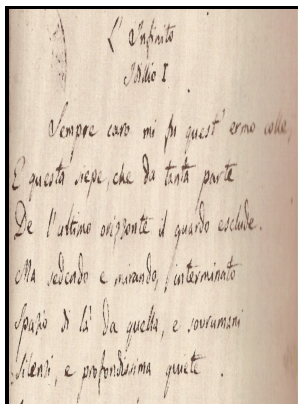 L'Infinito
Idillio I
Sempre caro mi fu quest'ermo colle,
E questa siepe, che da tanta parte
De l'ultimo orizzonte il guardo esclude.
Ma sedendo e mirando, interminato
Spazio di là da quella, e sovrumani
Silenzi, e profondissima quiete